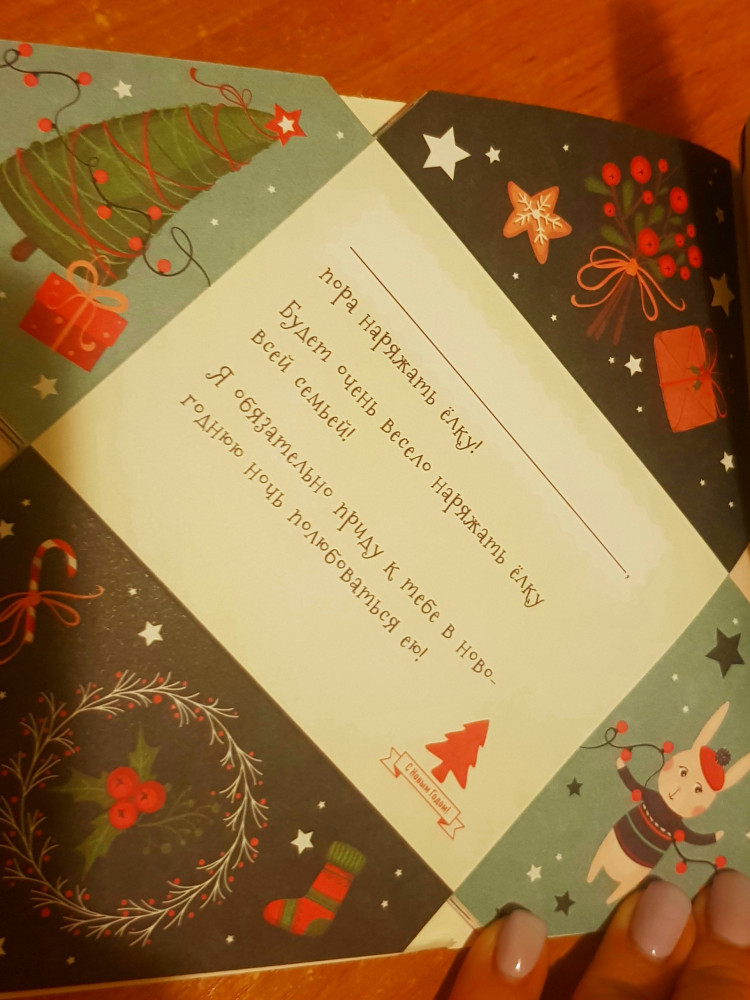 пора наряжать ёлку!
Будет очень весело наряжать ёлку
всей семьей!
Я обязательно приду к тебе в ново-
годнюю ночь полюбоваться ею!
С Новым Годом!